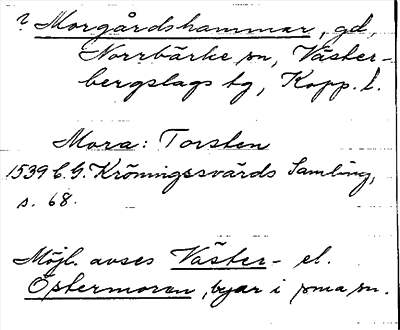 ? Morgårdshammar, gd,
Norrbärke sn, Väster-
bergslags tg, Kopp. l.
Mora: Torsten
1539 C.G. Kröningssvärds Samling,
s. 68.
Möjl. avses Väster- el.
Östermoran, byar i sma sn.